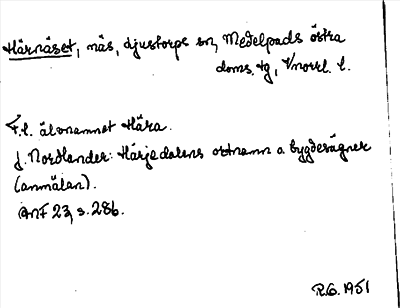 Härnäset, näs, Ljustorps sn, Medelpads östra
doms. tg, V/norrl. l.
F.l. älvnamnet Hära.
J. Nordlander: Härjedalens ortnamn o bygdesägner
(anmälan).
ANF 23, s. 286.
R.G. 1951